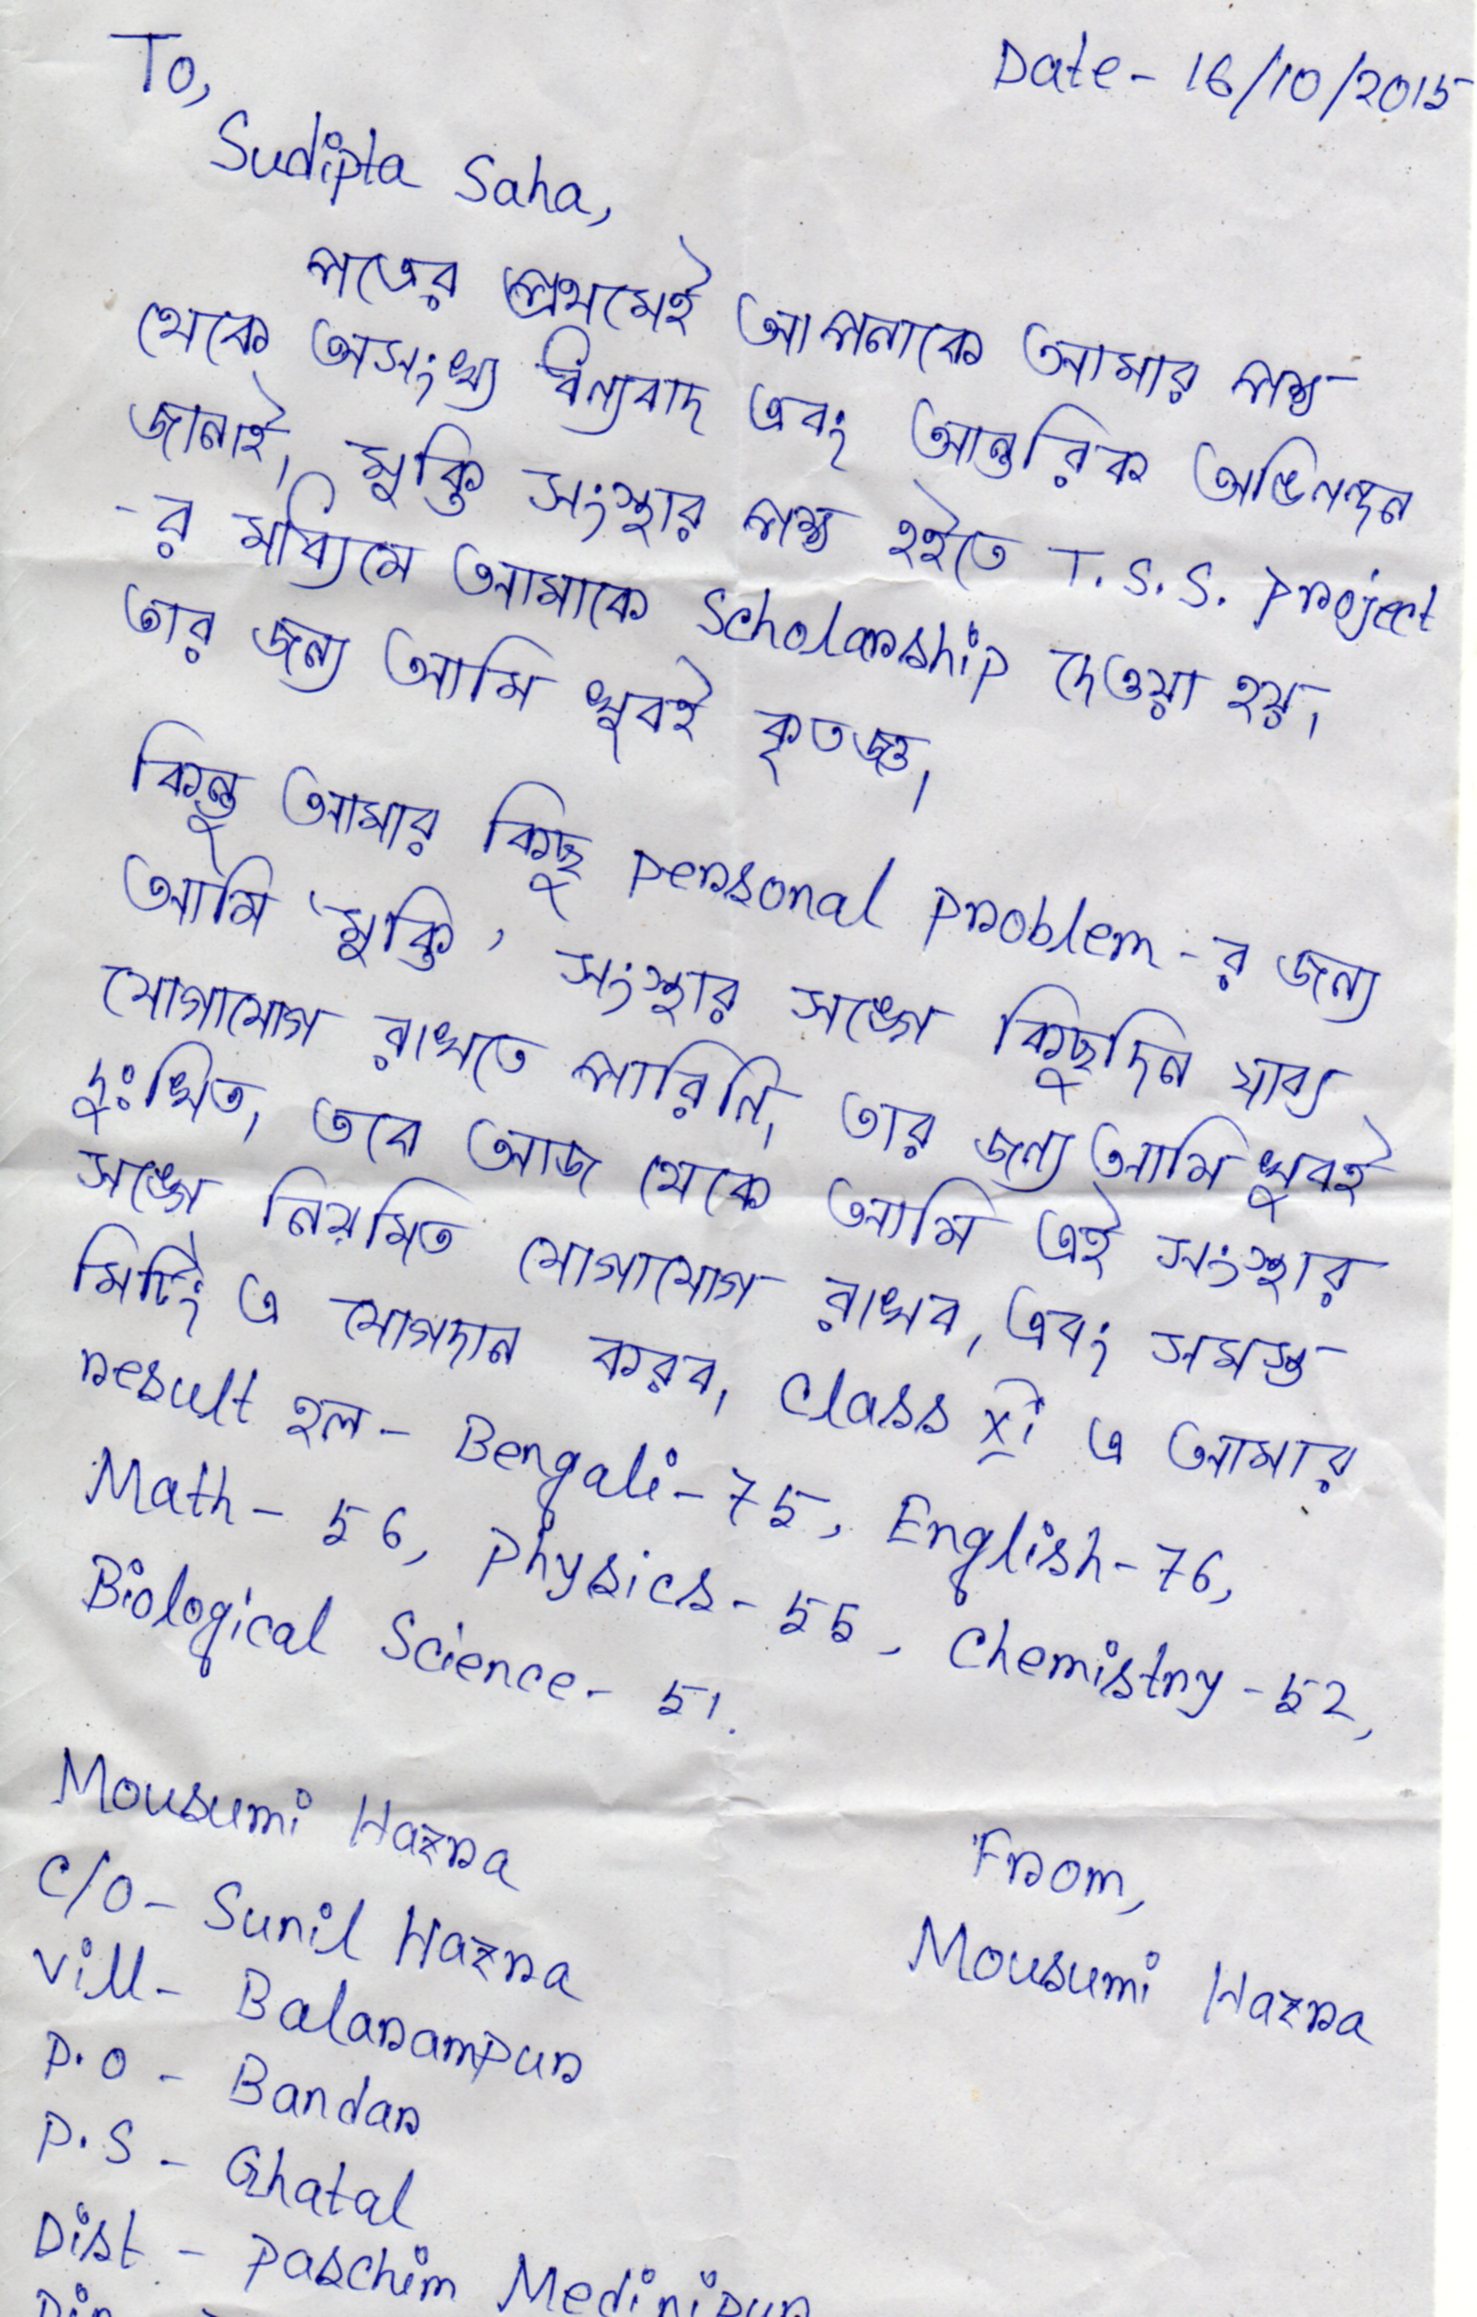 To,
Date - 16/10/2015
Sudipta Saha,
পত্রের প্রথমেই আপনাকে আমার পক্ষ
থেকে অসংখ্য ধন্যবাদ এবং আন্তরিক অভিনন্দন
জানাই, মুক্তি সংস্থার পক্ষ হইতে T.S.S. Project
-র মাধ্যমে আমাকে Scholarship দেওয়া হয়,
তার জন্য আমি খুবই কৃতজ্ঞ,
কিন্তু আমার কিছু personal problem-র জন্য
আমি 'মুক্তি' সংস্থার সঙ্গে কিছুদিন যাবৎ
যোগাযোগ রাখতে পারিনি, তার জন্য আমি খুবই
দুঃখিত, তবে আজ থেকে আমি এই সংস্থার
সঙ্গে নিয়মিত যোগাযোগ রাখব, এবং সমস্ত
মিটিং এ যোগদান করব, Class XI এ আমার
result হল - Bengali - 75, English - 76,
Math - 56, Physics - 55, Chemistry - 52,
Biological Science - 51.
Mousumi Hazra
C/O - Sunil Hazra
Vill - Balarampur
P.O - Bandar
P.S - Ghatal
Dist - Paschim Medinipur
From,
Mousumi Hazra